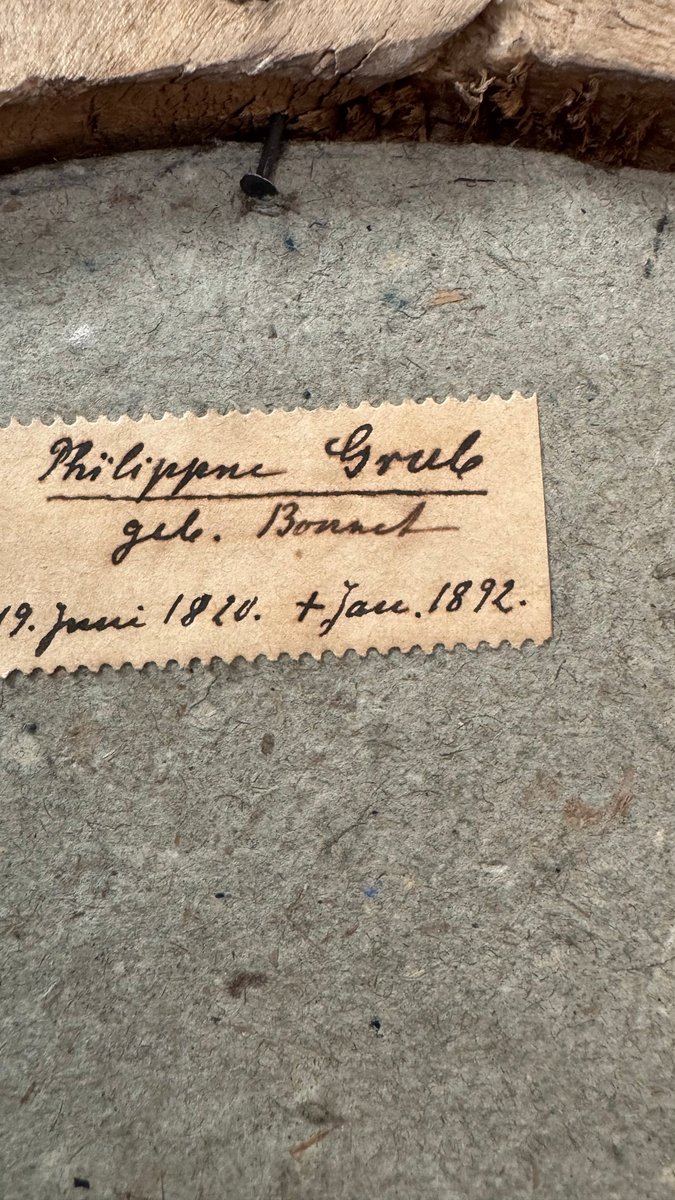 Philippne Grub
geb. Bonnet
19. Juni 1820. + Jan. 1892.